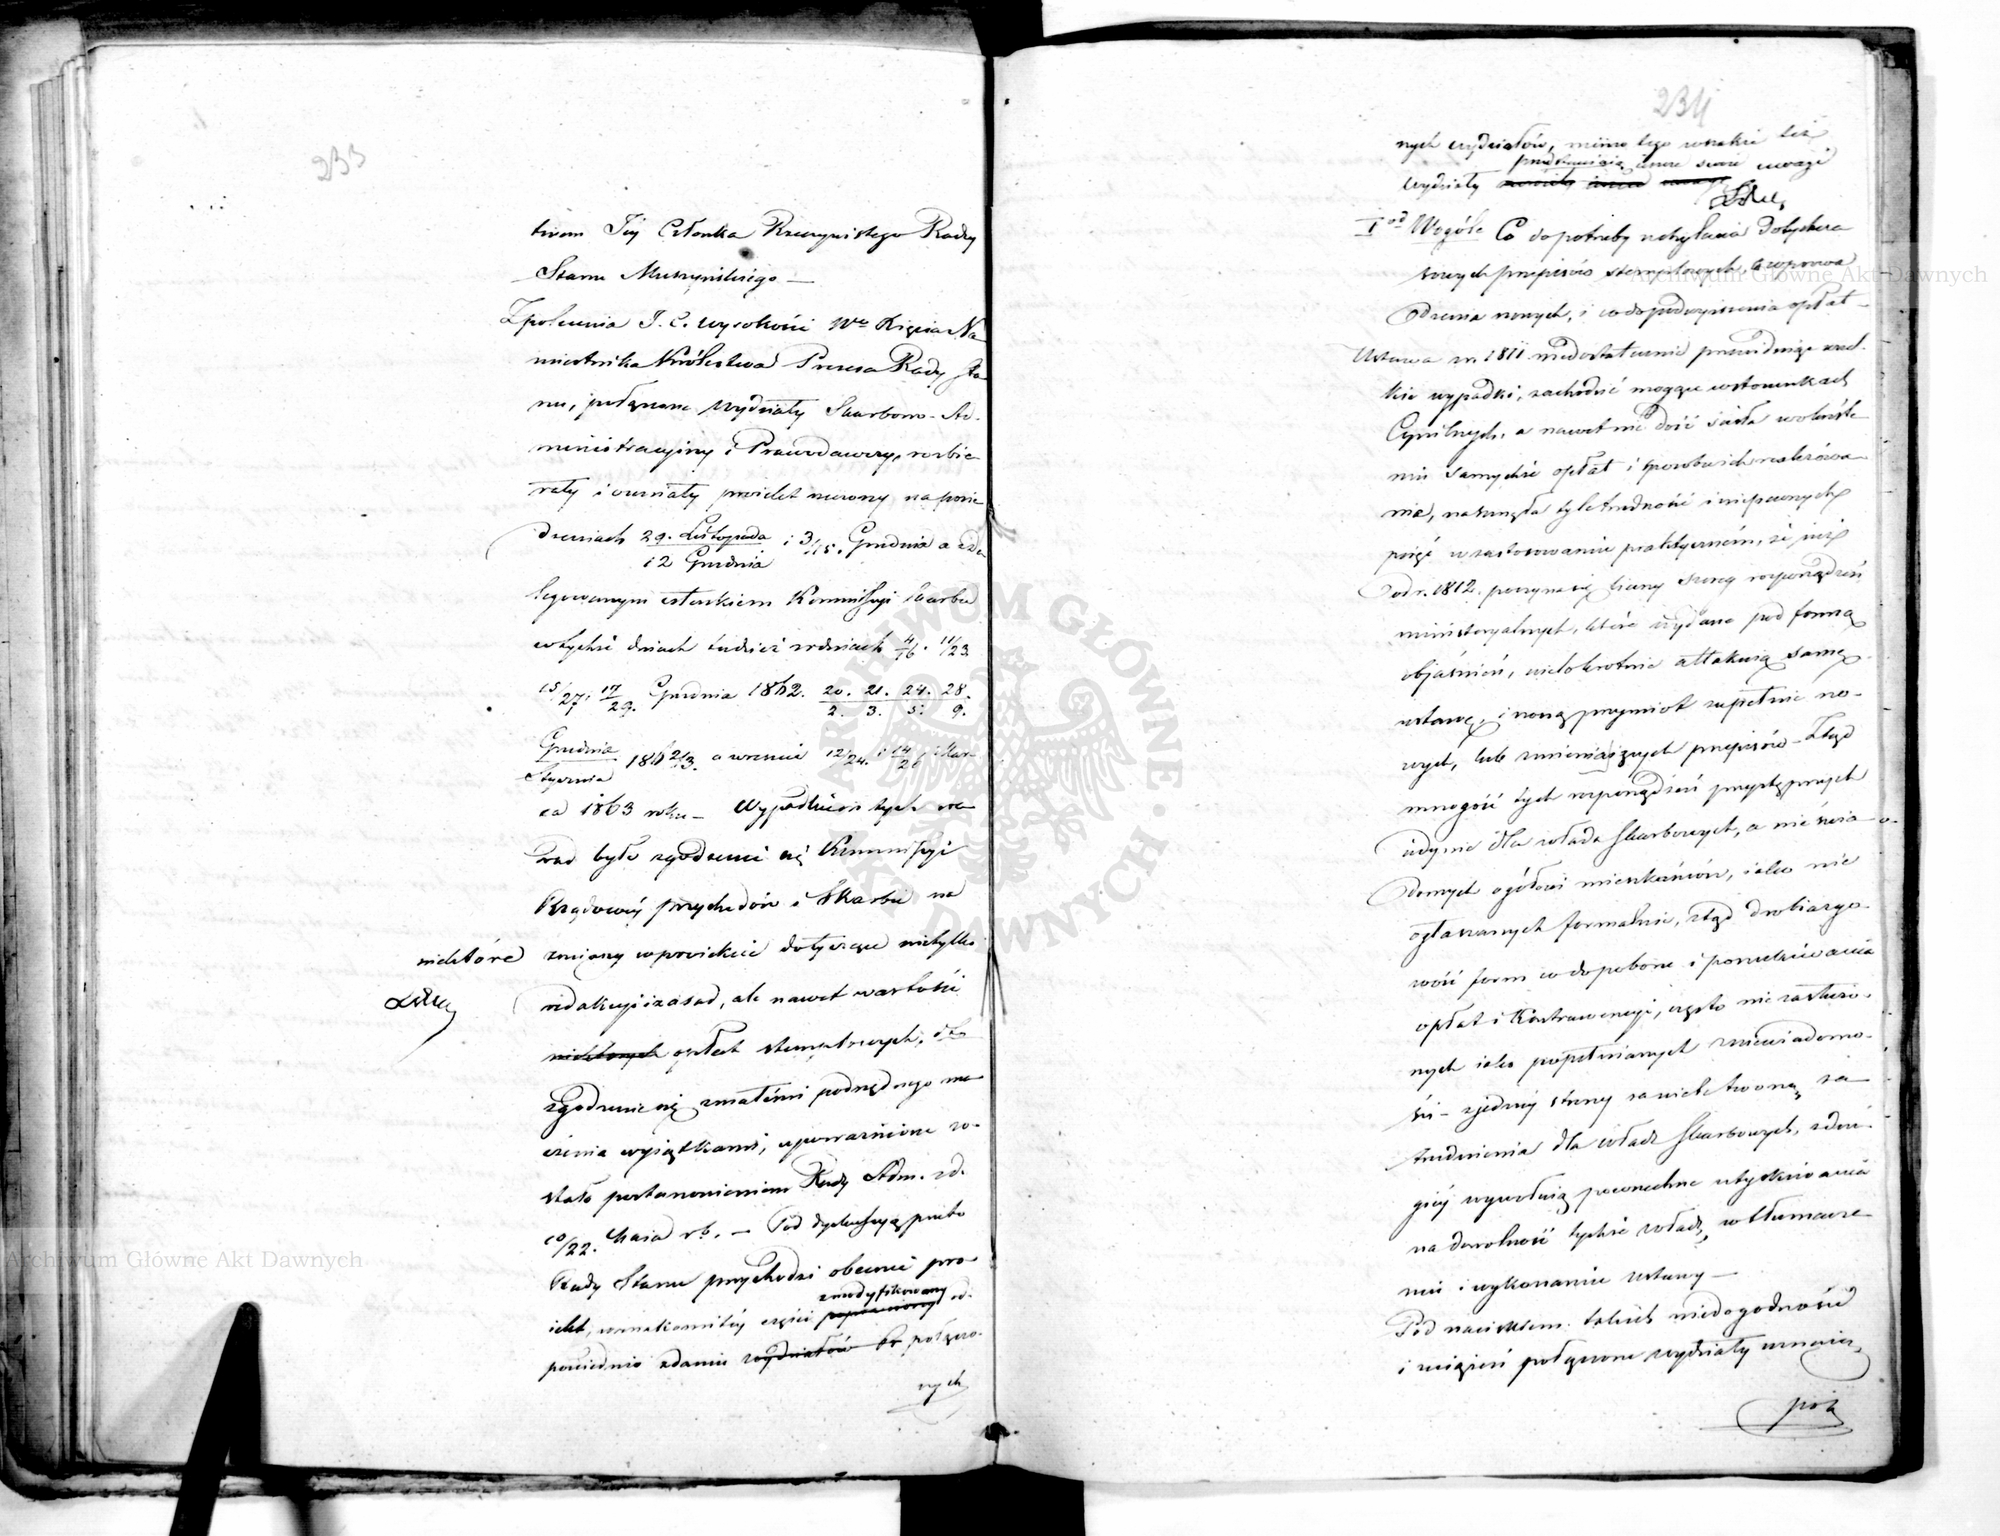 233
twem Jey Członka Rzeczywistego Rady
Stanu Muszyńskiego —
Z polecenia J. C. Wysokości Wgo Xięcia Na
miestnika Królestwa Prezesa Rady Sta
nu, połączone Wydziały Skarbowo-Ad-
ministracyjny i Prawodawczy, rozbie
rały i oceniały projekt mowiony na posie
dzeniach 29. Listopada / 12 Grudnia i 3/15. Grudnia a z de
legowanym członkiem Kommissyi Skarbu
w tychże dniach tudzież w dniach 4/16. 11/23
15/27. 17/29. Grudnia 1862. 20. 21. 24. 28. / 2. 3. 5. 9.
Grudnia / Stycznia 186 2/3. a wreszcie 12/24. i 14/26 Mar-
ca 1863 roku — Wypadkiem tych na
rad było zgodzenie się Kommissyi
Rządowej przychodów i Skarbu na
niektóre zmiany w projekcie dotyczące nietylko
redakcyi i zasad, ale nawet wartości
niektórych opłat stemplowych, dla
zgodzenie się z małemi podrzędnego zna
czenia wyjątkami, upoważnione zo-
stało postanowieniem Rady Adm. z d.
10/22. Maja r. b. — Pod dyskussyą przeto
Rady Stanu przychodzi obecnie pro
jekt, w znakomitej części poprawiony zmodyfikowany od-
powiednio zdaniu wydziałów połączo-
nych
234
nych wydziałów, mimo tego wszakże też
wydziały przedstawiają swoje uwagi
I od Wogóle Co do potrzeby uchylenia dotychcza
sowych przepisów stemplowych, wprowa
dzenia nowych, i co do podwyższenia opłat —
Ustawa z r. 1811 niedostatecznie przewidując wszel-
kie wypadki, zachodzić mogące w stosunkach
Cywilnych, a nawet nie dość ścisła w określe
niu samychże opłat i sposobu ich realizowa
nia, nasunęła tyle trudności i niepewnych
pojęć w zastosowaniu praktycznem, że już
od r. 1812. poczyna się liczny szereg rozporządzeń
ministeryalnych, które wydane pod formą
objaśnień, wielokrotnie attakują samę
ustawę, i noszą przymiot zupełnie no-
wych, lub zmieniających przepisów — Ztąd
mnogość tych rozporządzeń przystępnych
jedynie dla władz skarbowych, a nie świa-
domych ogółowi mieszkańców, jako nie
ogłaszanych formalnie, ztąd drobiazgo-
wość form w do poborze i poszukiwania
opłat i Kontrawencyi, często nie zasłużo-
nych jako popełnianych z nieświadomo-
ści — z jednej strony za wiele tworzą za
trudnienia dla władz skarbowych, z dru-
giej wywołują powszechne utyskiwania
na dowolność tychże władz, w tłumacze
niu i wykonaniu ustawy —
Pod naciskiem takich niedogodności
i zażaleń połączone wydziały